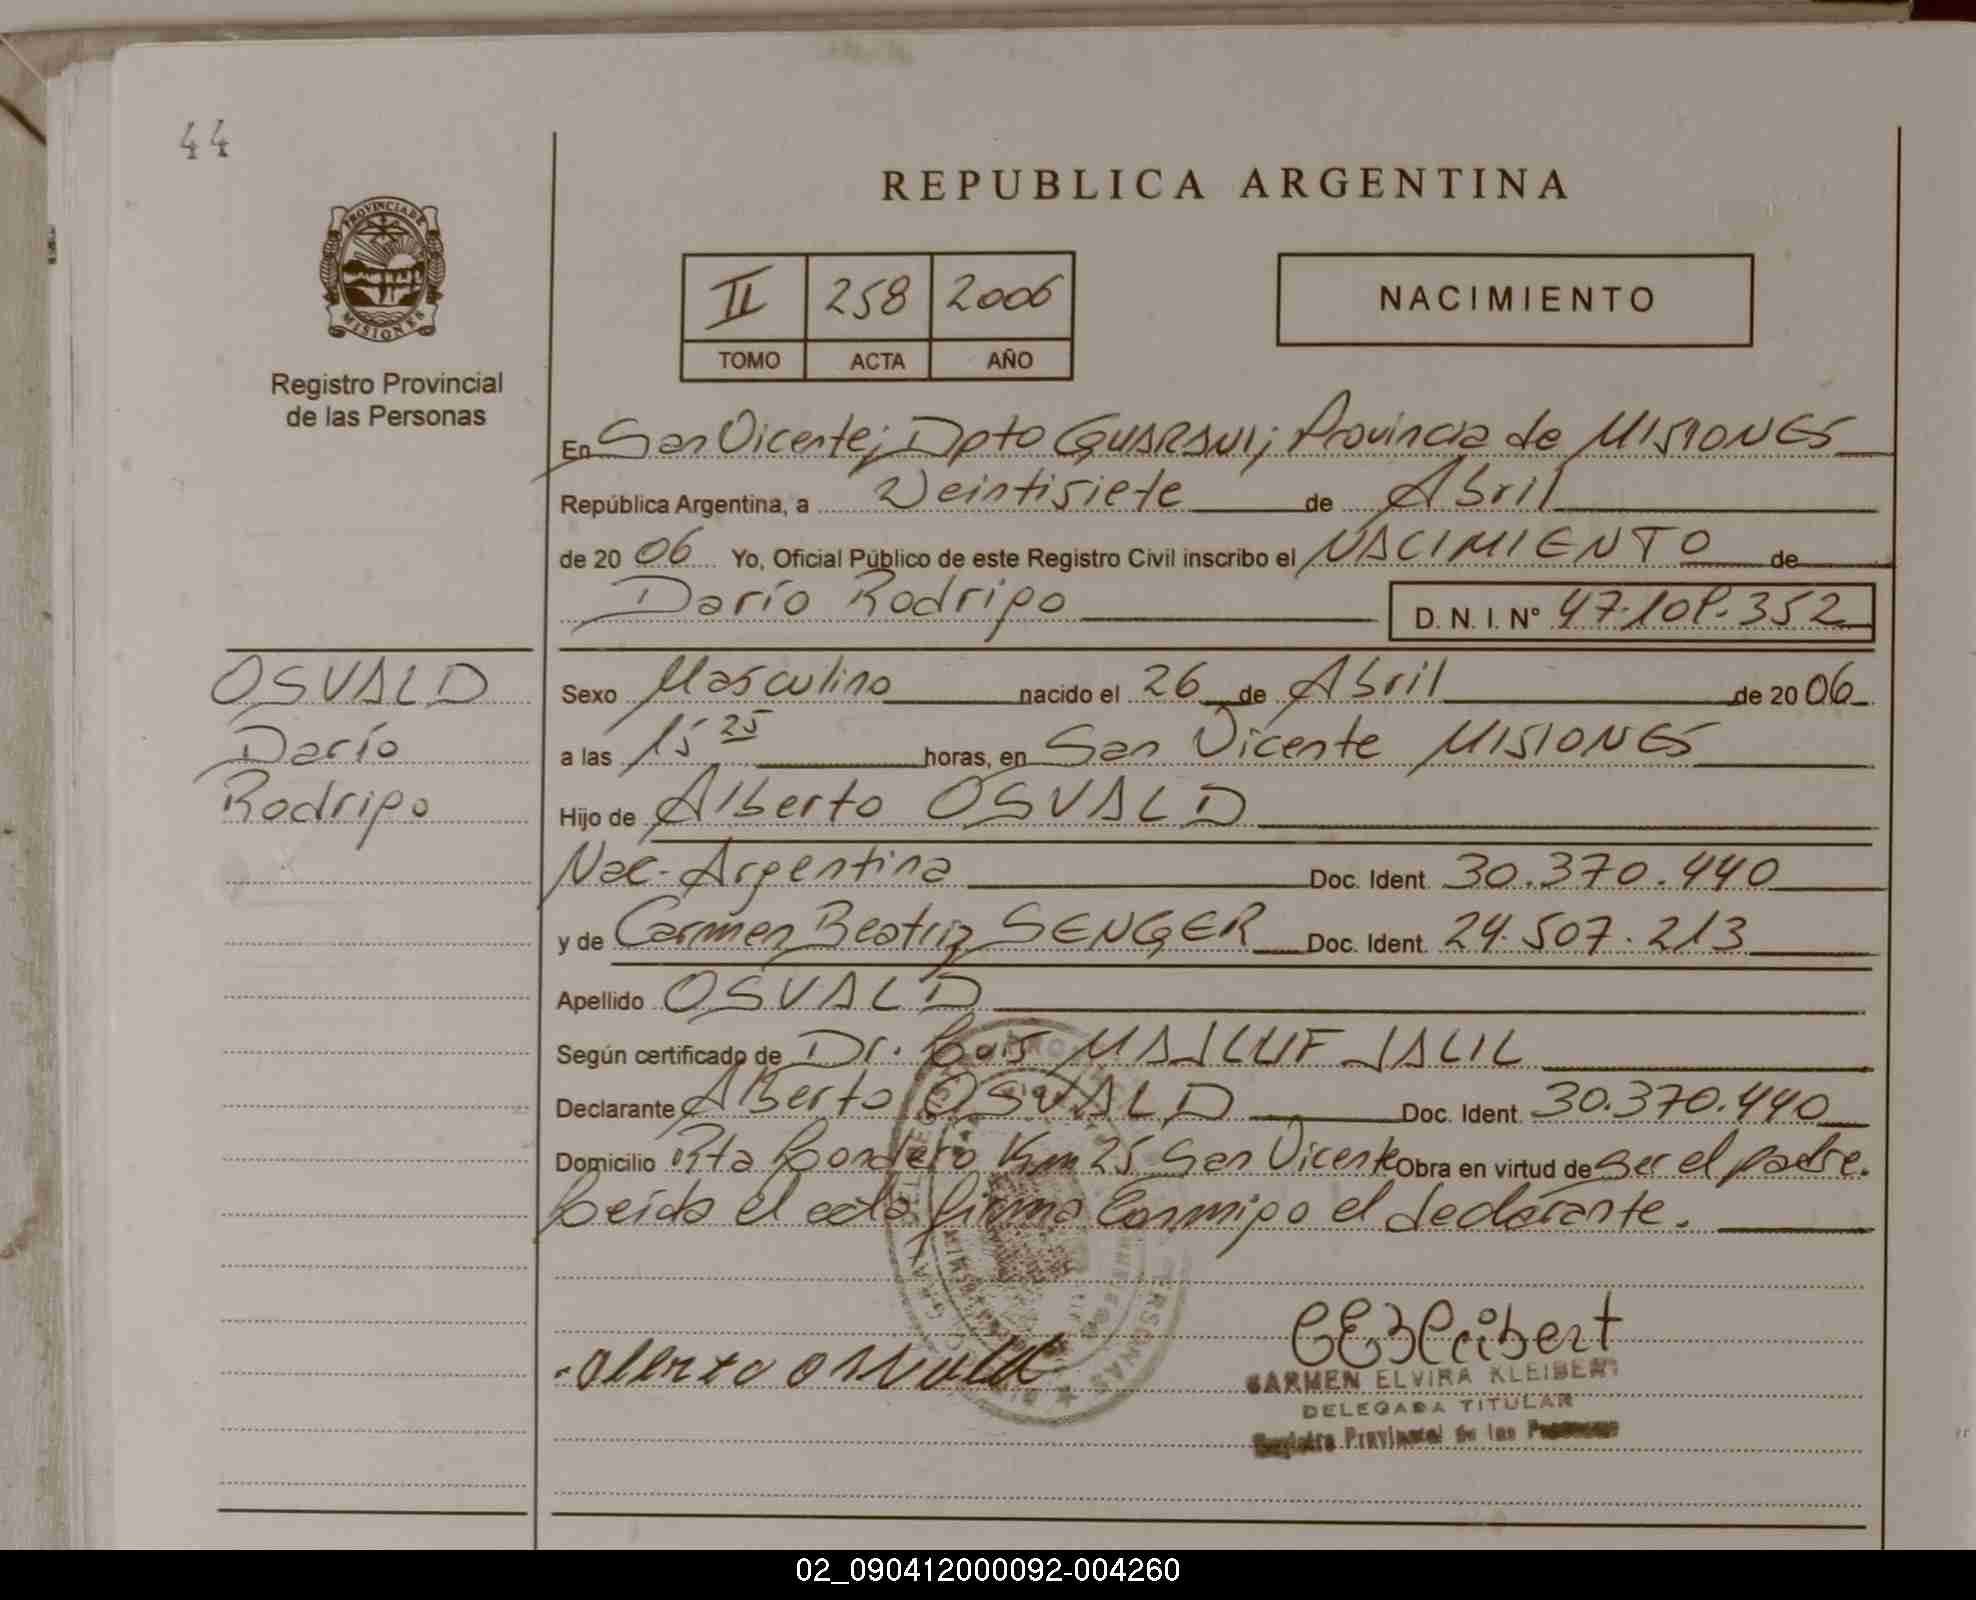 44
PROVINCIA DE
MISIONES
Registro Provincial
de las Personas
REPUBLICA ARGENTINA
II 258 2006
TOMO ACTA AÑO
NACIMIENTO
En San Vicente; Dpto GUARANI; Provincia de MISIONES
República Argentina, a Veintisiete de Abril
de 20 06 Yo, Oficial Público de este Registro Civil inscribo el NACIMIENTO de
Darío Rodrigo D. N. I. N° 47.109.352
OSVALD
Darío
Rodrigo
Sexo Masculino nacido el 26 de Abril de 20 06
a las 15 25 horas, en San Vicente MISIONES
Hijo de Alberto OSVALD
Nac. Argentina Doc. Ident. 30.370.440
y de Carmen Beatriz SENGER Doc. Ident. 24.507.213
Apellido OSVALD
Según certificado de Dr. Luis MAJLUF JALIL
Declarante Alberto OSVALD Doc. Ident. 30.370.440
Domicilio Rta Londero Km 25 San Vicente Obra en virtud de ser el padre.
Leída el acta firma Conmigo el declarante.
Alberto Osvald
CEKleibert
CARMEN ELVIRA KLEIBERT
DELEGADA TITULAR
Registro Provincial de las Personas
02_090412000092-004260